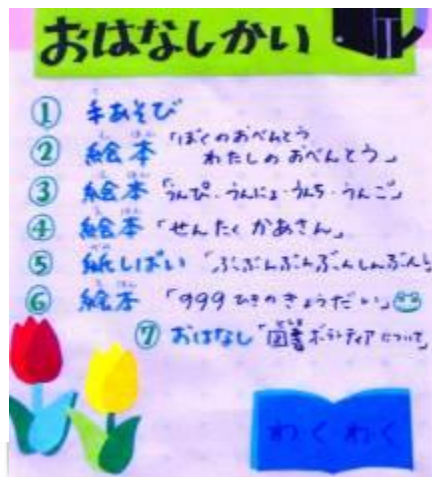 おはなしかい
① 手あそび
② 絵本「ぼくのおべんとう
わたしのおべんとう」
③ 絵本「うんぴ・うんにょ・うんち・うんご」
④ 絵本「せんたくかあさん」
⑤ 紙しばい「ぶぶぶんぶんぶんしんぶんし
⑥ 絵本「999ひきのきょうだい」
⑦ おはなし「図書ボランティアについて」
わくわく